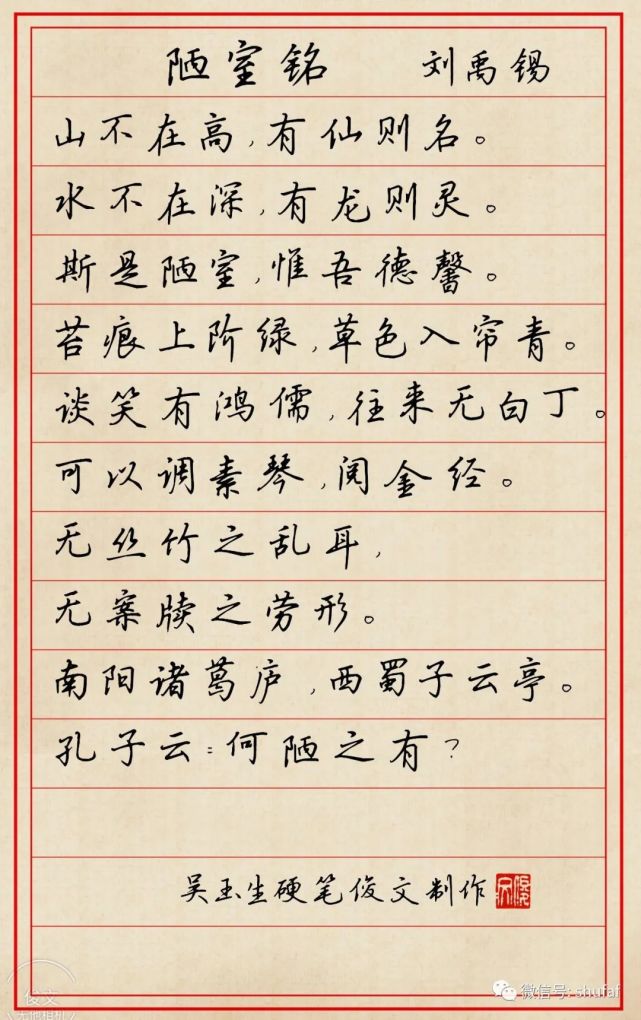 陋室铭 刘禹锡
山不在高,有仙则名。
水不在深,有龙则灵。
斯是陋室,惟吾德馨。
苔痕上阶绿,草色入帘青。
谈笑有鸿儒,往来无白丁。
可以调素琴,阅金经。
无丝竹之乱耳,
无案牍之劳形。
南阳诸葛庐,西蜀子云亭。
孔子云:何陋之有?
吴玉生硬笔俊文制作
俊文
微信号: shufaf